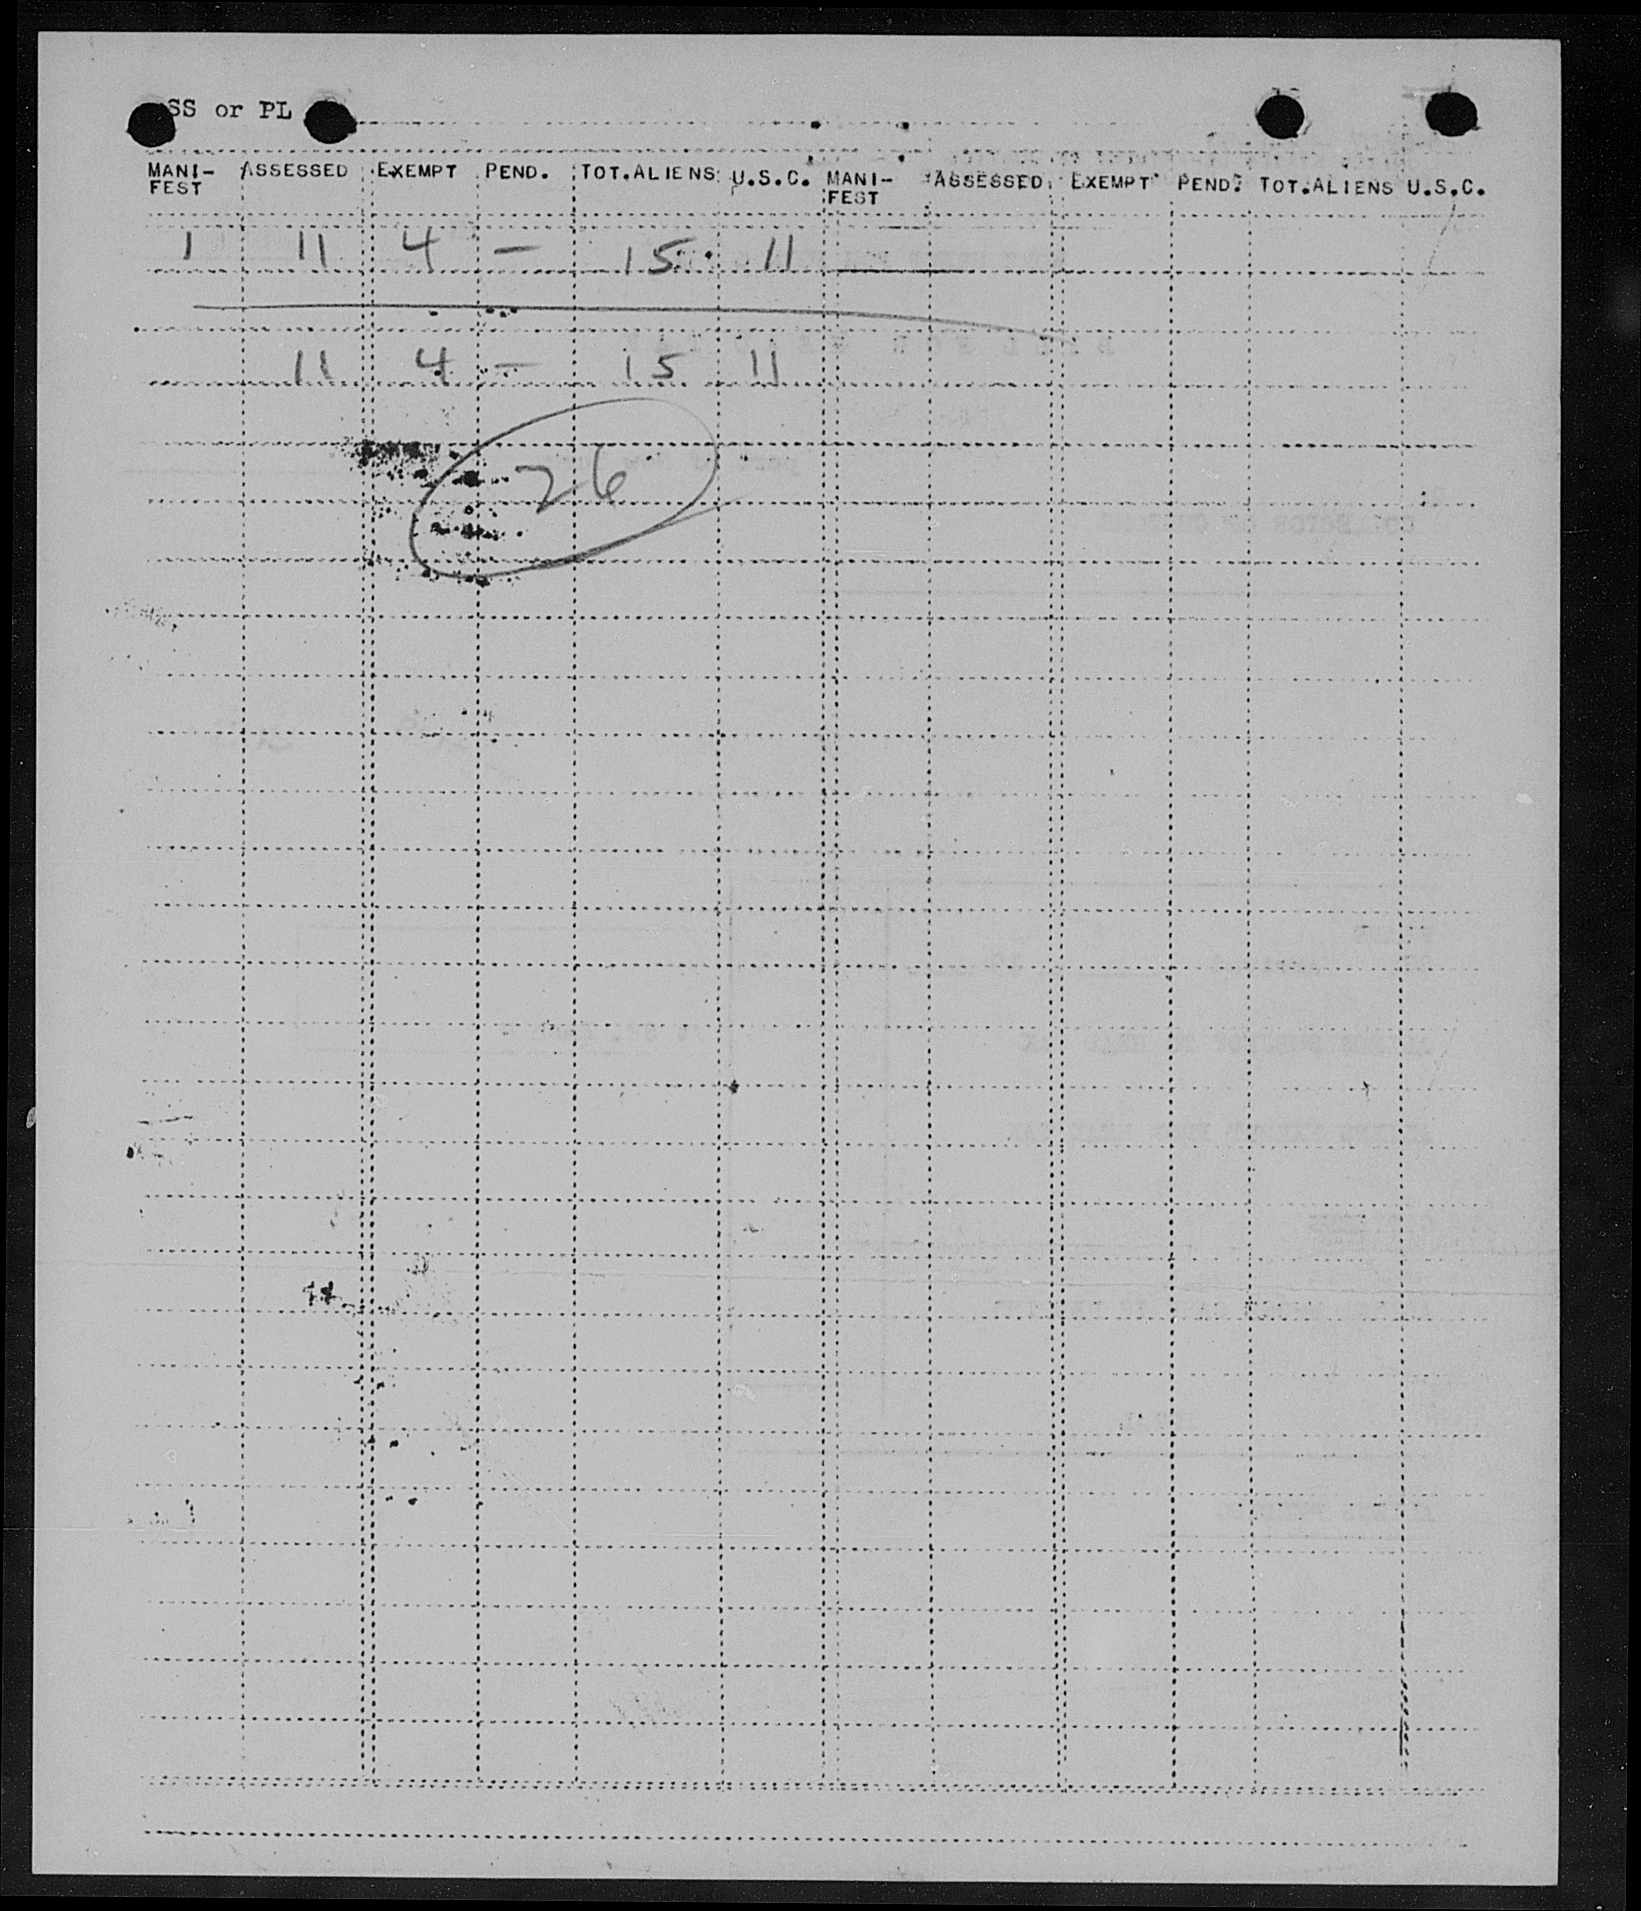 SS or PL
MANI-FEST ASSESSED EXEMPT PEND. TOT.ALIENS U.S.C. MANI-FEST ASSESSED EXEMPT PEND. TOT.ALIENS U.S.C.
1 11 4 — 15 11
11 4 — 15 11
26